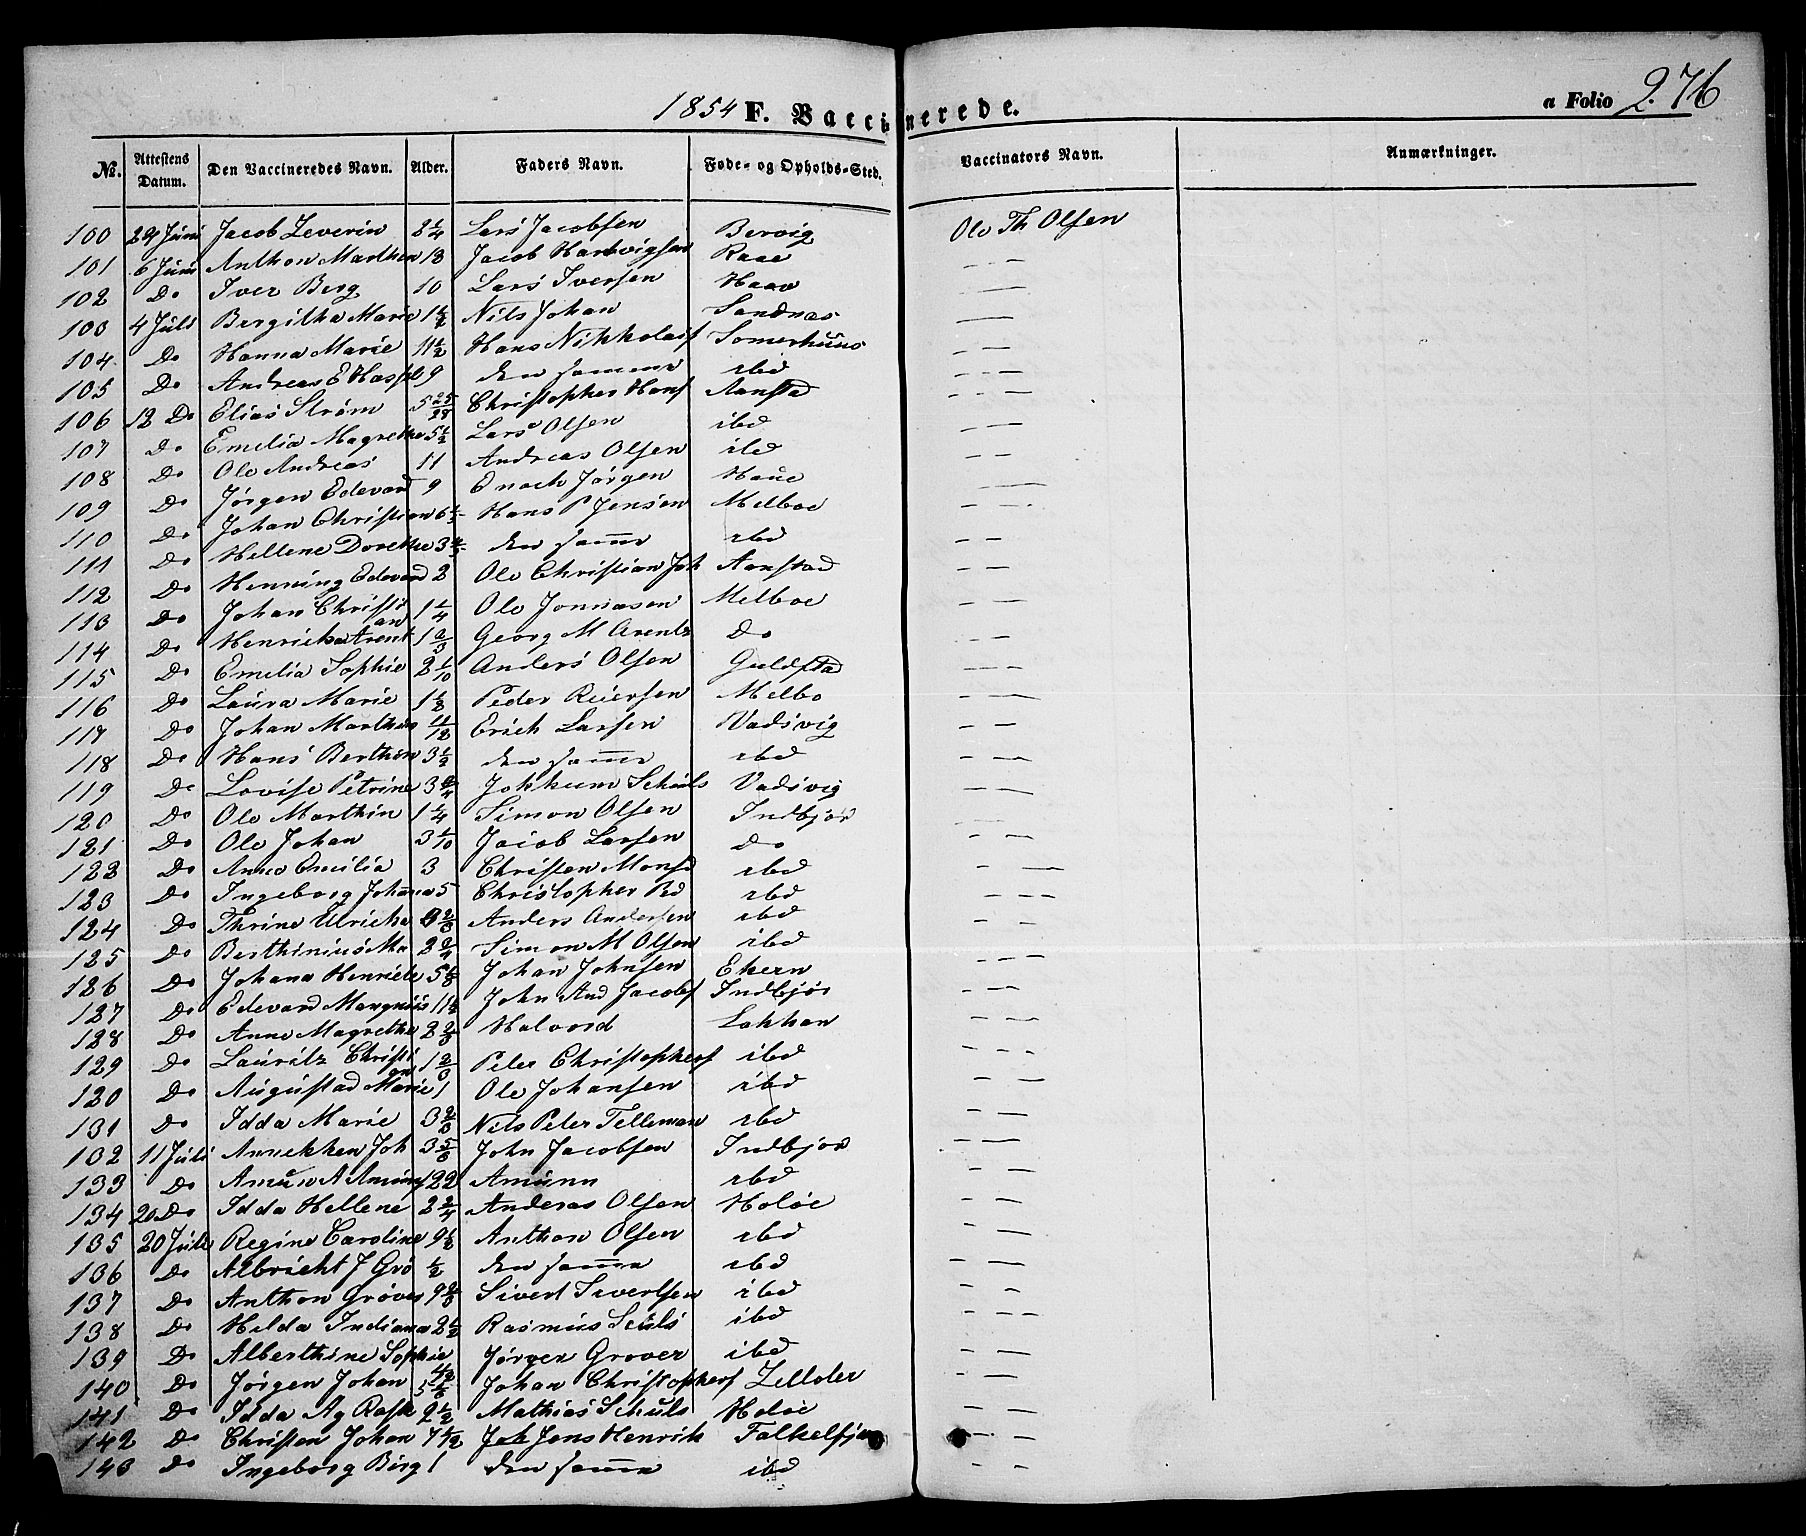 1854 F. Vaccinerede. a Folio 276
No. Attestens Datum. Den Vaccineredes Navn. Alder. Faders Navn. Føde- og Opholds-Sted. Vaccinators Navn. Anmærkninger.
100 24 Juni Jacob Zeverin 2 1/4 Lars Jacobsen Bervig Ole Th Olsen
101 6 Juni Anthon Marthen 13 Jacob Hartvigsen Raae — —
102 Do Iver Berg 10 Lars Iversen Haav — —
103 4 Juli Bergitha Marie 1 1/2 Nils Johan Sandnæs — —
104 Do Hanna Marie 11 1/2 Hans Nikkolais Somerhuus — —
105 Do Andreas E Hasfl 9 den samme ibd — —
106 12 Do Elias Strøm 5 25/28 Christopher Hans Aansta — —
107 Do Emelia Magrethe 5 1/2 Lars Olsen ibd — —
108 Do Ole Andreas 11 Andreas Olsen ibd — —
109 Do Jørgen Edevard 9 Enoch Jørgen Haue — —
110 Do Johan Christian 6 1/3 Hans P Jensen Melboe — —
111 Do Hellene Dorethe 3 den samme ibd — —
112 Do Henning Edevard 2 Ole Christian Joh Aanstad — —
113 Do Johan Christian 1 1/4 Ole Jonnasen Melboe — —
114 Do Henricha Arent 1 2/3 Georg M Arentz Do — —
115 Do Emelia Sophie 2 1/10 Anders Olsen Guldsta — —
116 Do Laura Marie 1 1/2 Peder Reiersen Melbo — —
117 Do Johan Marthus 11/12 Erich Larsen Vadsvig — —
118 Do Hans Berthin 3 1/2 den samme ibd — —
119 Do Lovise Petrine 3 Jokkum Schuls Vadsvig — —
120 Do Ole Marthin 1 1/4 Simon Olsen Indbjør — —
121 Do Ole Johan 3 1/10 Jacob Larsen Do — —
122 Do Anne Emilia 3 Christen Monsd ibd — —
123 Do Ingeborg Johanna 5 Christopher Bd ibd — —
124 Do Thrine Ulricha Anders Andersen ibd — —
125 Do Berthinius Ma 2 2/4 Simon M Olsen ibd — —
126 Do Johana Henriete 5 Johan Johnsen Ekern — —
127 Do Edevard Mangnus 11 1/2 John And Jacobs Indbjør — —
128 Do Anne Magrethe 2 2/3 Halvord Lakhan — —
129 Do Lauritz Christian 1 2/3 Peter Christophers ibd — —
120 Do Augustad Marie 1 Ole Johansen ibd — —
131 Do Idda Marie 3 2/3 Nils Peter Telleman ibd — —
132 11 Juli Annekken Joh 3 John Jacobsen Indbjør — —
133 Do 22 Amunn ibd — —
134 20 Do Idda Hellene 2 2/4 Anderas Olsen Holøe — —
135 20 Juli Regine Caroline 9 1/2 Anthon Olsen ibd — —
136 Do Albricht J Grø 1/2 den samme ibd — —
137 Do Anthon Grøver 9 2/3 Sivert Sivertsen ibd — —
138 Do Hilda Indiana 2 1/2 Rasmus Schuls ibd — —
139 Do Alberthine Sophie Jørgen Grover ibd — —
140 Do Jørgen Johan 5 Johan Christophers Zelloter — —
141 Do Idda Ag Rask 2 1/2 Mathias Schuls Holøe — —
142 Do Christen Johan 7 1/2 Joh Jens Henrik Falkelfjor — —
143 Do Ingeborg Birg 1 den samme ibd — —